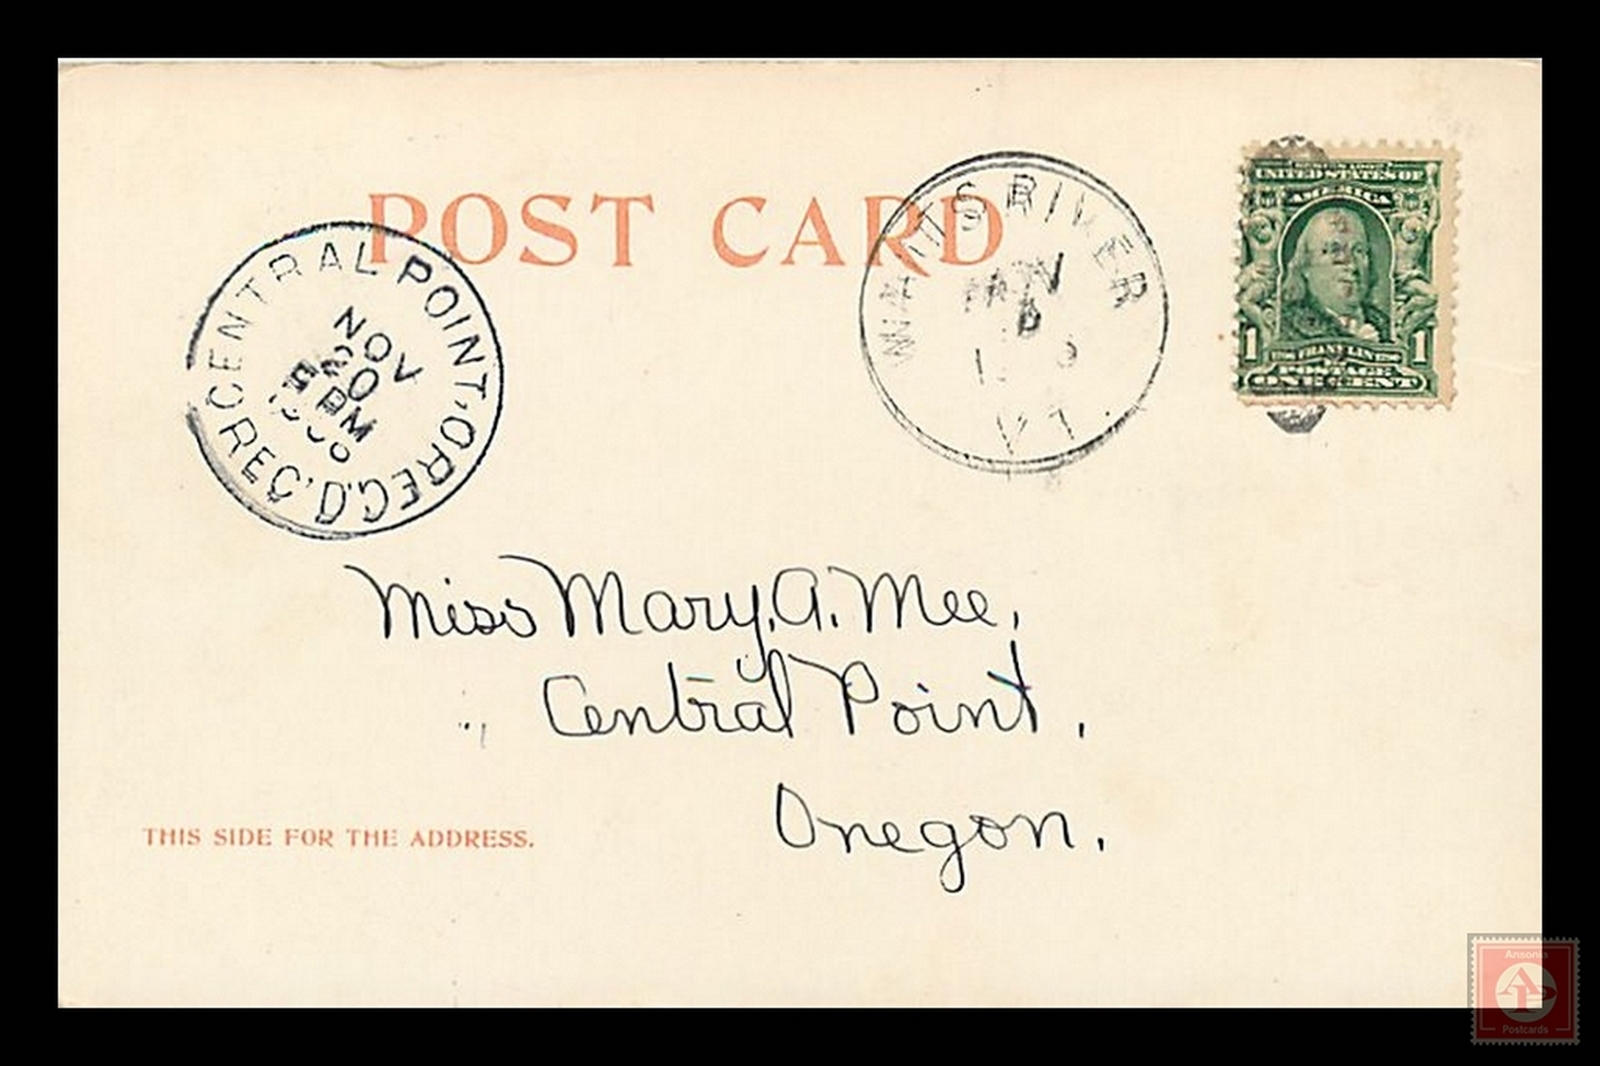 POST CARD
WAITS RIVER
NOV
VT.
CENTRAL POINT, OREG.
NOV
20
PM
REC'D.
UNITED STATES OF
AMERICA
1 FRANKLIN 1
POSTAGE
ONE CENT
Miss Mary. A. Mee,
Central Point,
Oregon.
THIS SIDE FOR THE ADDRESS.
Ansonia
AP
Postcards